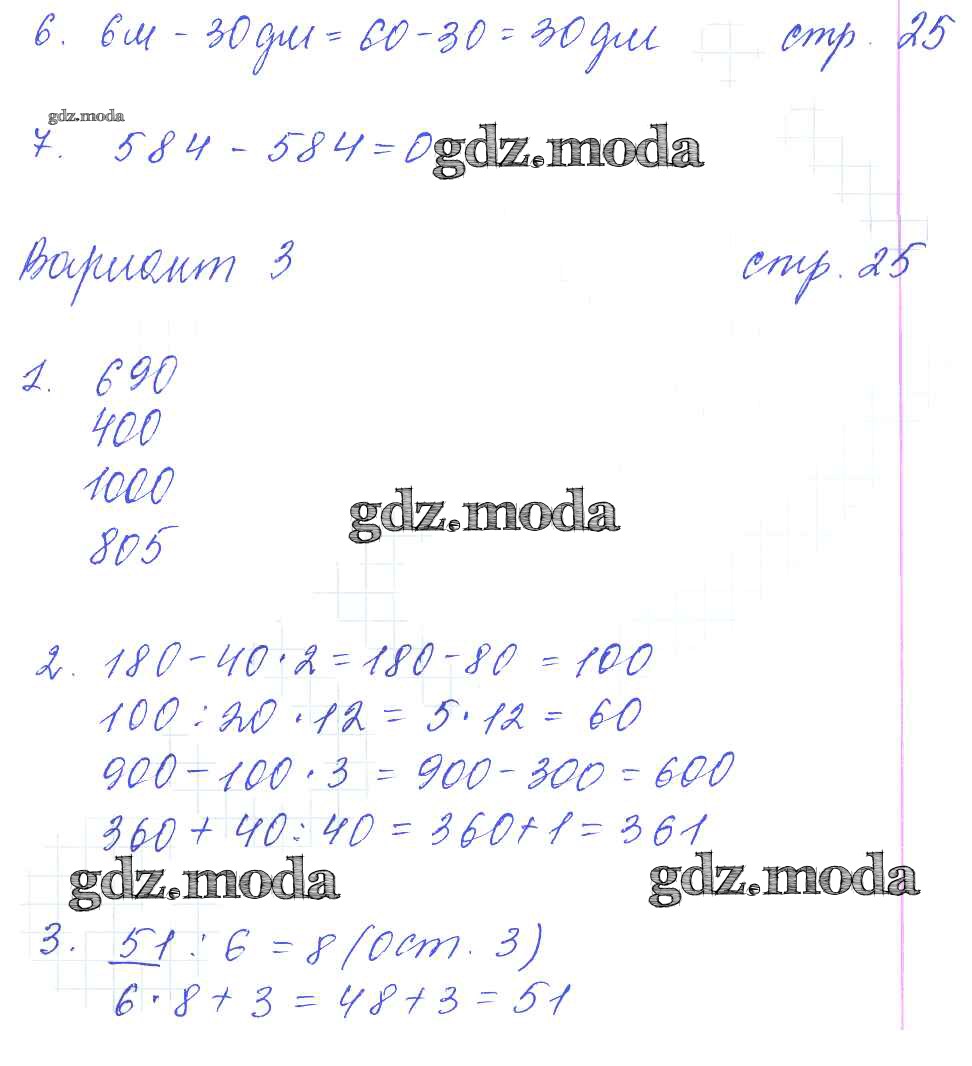 6. 6м - 30дм = 60-30 = 30дм стр. 25
gdz.moda
7. 584 - 584 = 0 gdz.moda
Вариант 3 стр. 25
1. 690
400
1000
805
gdz.moda
2. 180-40·2 = 180-80 = 100
100 : 20 · 12 = 5·12 = 60
900-100·3 = 900-300 = 600
360+40:40 = 360+1 = 361
gdz.moda gdz.moda
3. 51 : 6 = 8 (Ост. 3)
6·8+3 = 48+3 = 51